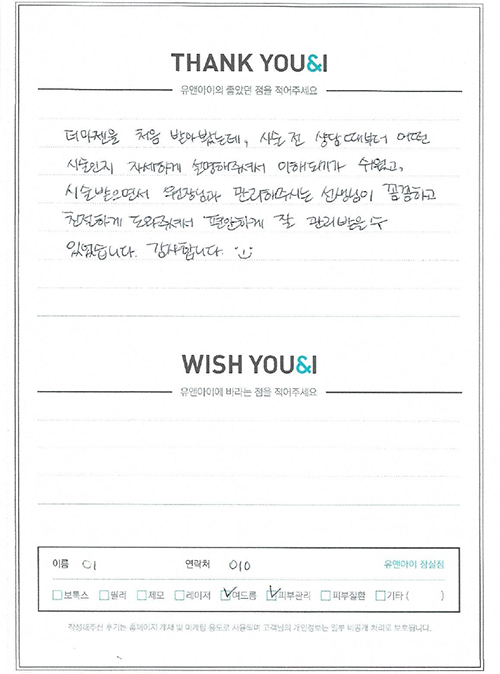 THANK YOU&I
유앤아이의 좋았던 점을 적어주세요
더마젠을 처음 받아봤는데, 시술 전 상담 때부터 어떤
시술인지 자세하게 설명해주셔서 이해되기가 쉬웠고,
시술받으면서 원장님과 관리해주시는 선생님이 꼼꼼하고
친절하게 도와주셔서 편안하게 잘 관리받을 수
있었습니다. 감사합니다. :)
WISH YOU&I
유앤아이에 바라는 점을 적어주세요
이름 이 연락처 010 유앤아이 잠실점
보톡스 필러 제모 레이저 여드름 피부관리 피부질환 기타 ( )
작성해주신 후기는 홈페이지 게재 및 마케팅 용도로 사용되며 고객님의 개인정보는 일부 비공개 처리로 보호됩니다.